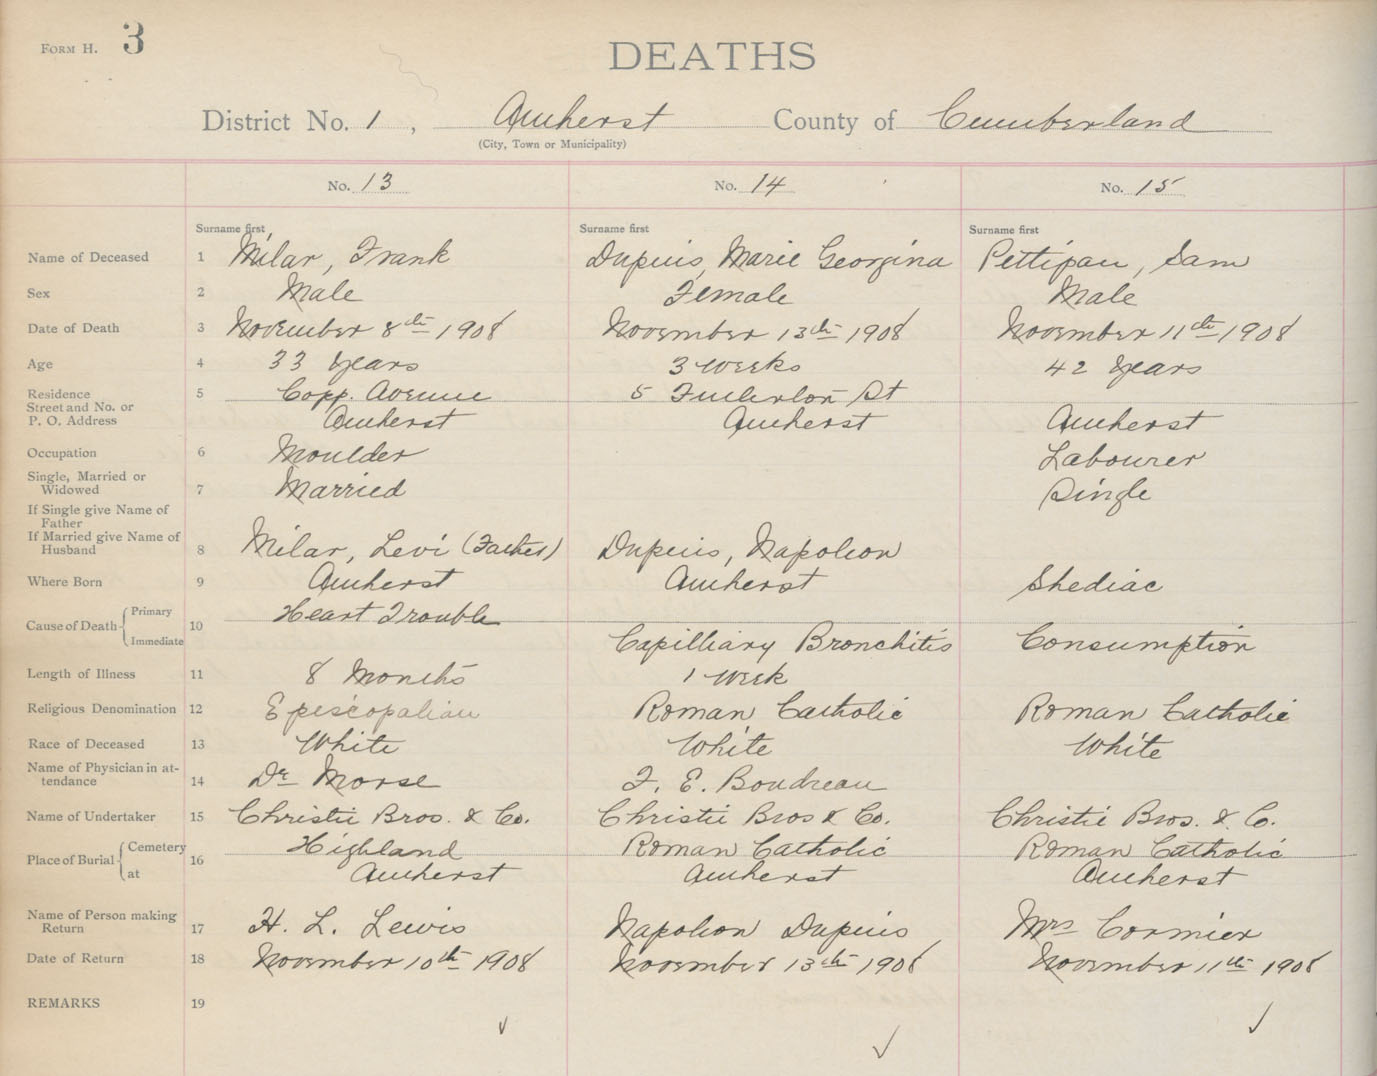 FORM H. 3
DEATHS
District No. 1, Amherst County of Cumberland
(City, Town or Municipality)
No. 13 No. 14 No. 15
Surname first Surname first Surname first
Name of Deceased 1 Milar, Frank Dupuis, Marie Georgina Pettipau, Sam
Sex 2 Male Female Male
Date of Death 3 November 8th 1908 November 13th 1908 November 11th 1908
Age 4 33 Years 3 weeks 42 Years
Residence 5 Copp. Avenue 5 Fullerton St
Street and No. or
P. O. Address Amherst Amherst Amherst
Occupation 6 Moulder Labourer
Single, Married or
Widowed 7 Married Single
If Single give Name of
Father
If Married give Name of
Husband 8 Milar, Levi (Father) Dupuis, Napoleon
Where Born 9 Amherst Amherst Shediac
Cause of Death Primary 10 Heart Trouble
Immediate Capilliary Bronchitis Consumption
Length of Illness 11 8 Months 1 Week
Religious Denomination 12 Episcopalian Roman Catholic Roman Catholic
Race of Deceased 13 White White White
Name of Physician in at-
tendance 14 Dr Morse F. E. Boudreau
Name of Undertaker 15 Christie Bros. & Co. Christie Bros & Co. Christie Bros. & Co.
Place of Burial Cemetery 16 Highland Roman Catholic Roman Catholic
at Amherst Amherst Amherst
Name of Person making
Return 17 H. L. Lewis Napoleon Dupuis Mrs Cormier
Date of Return 18 November 10th 1908 November 13th 1908 November 11th 1908
REMARKS 19